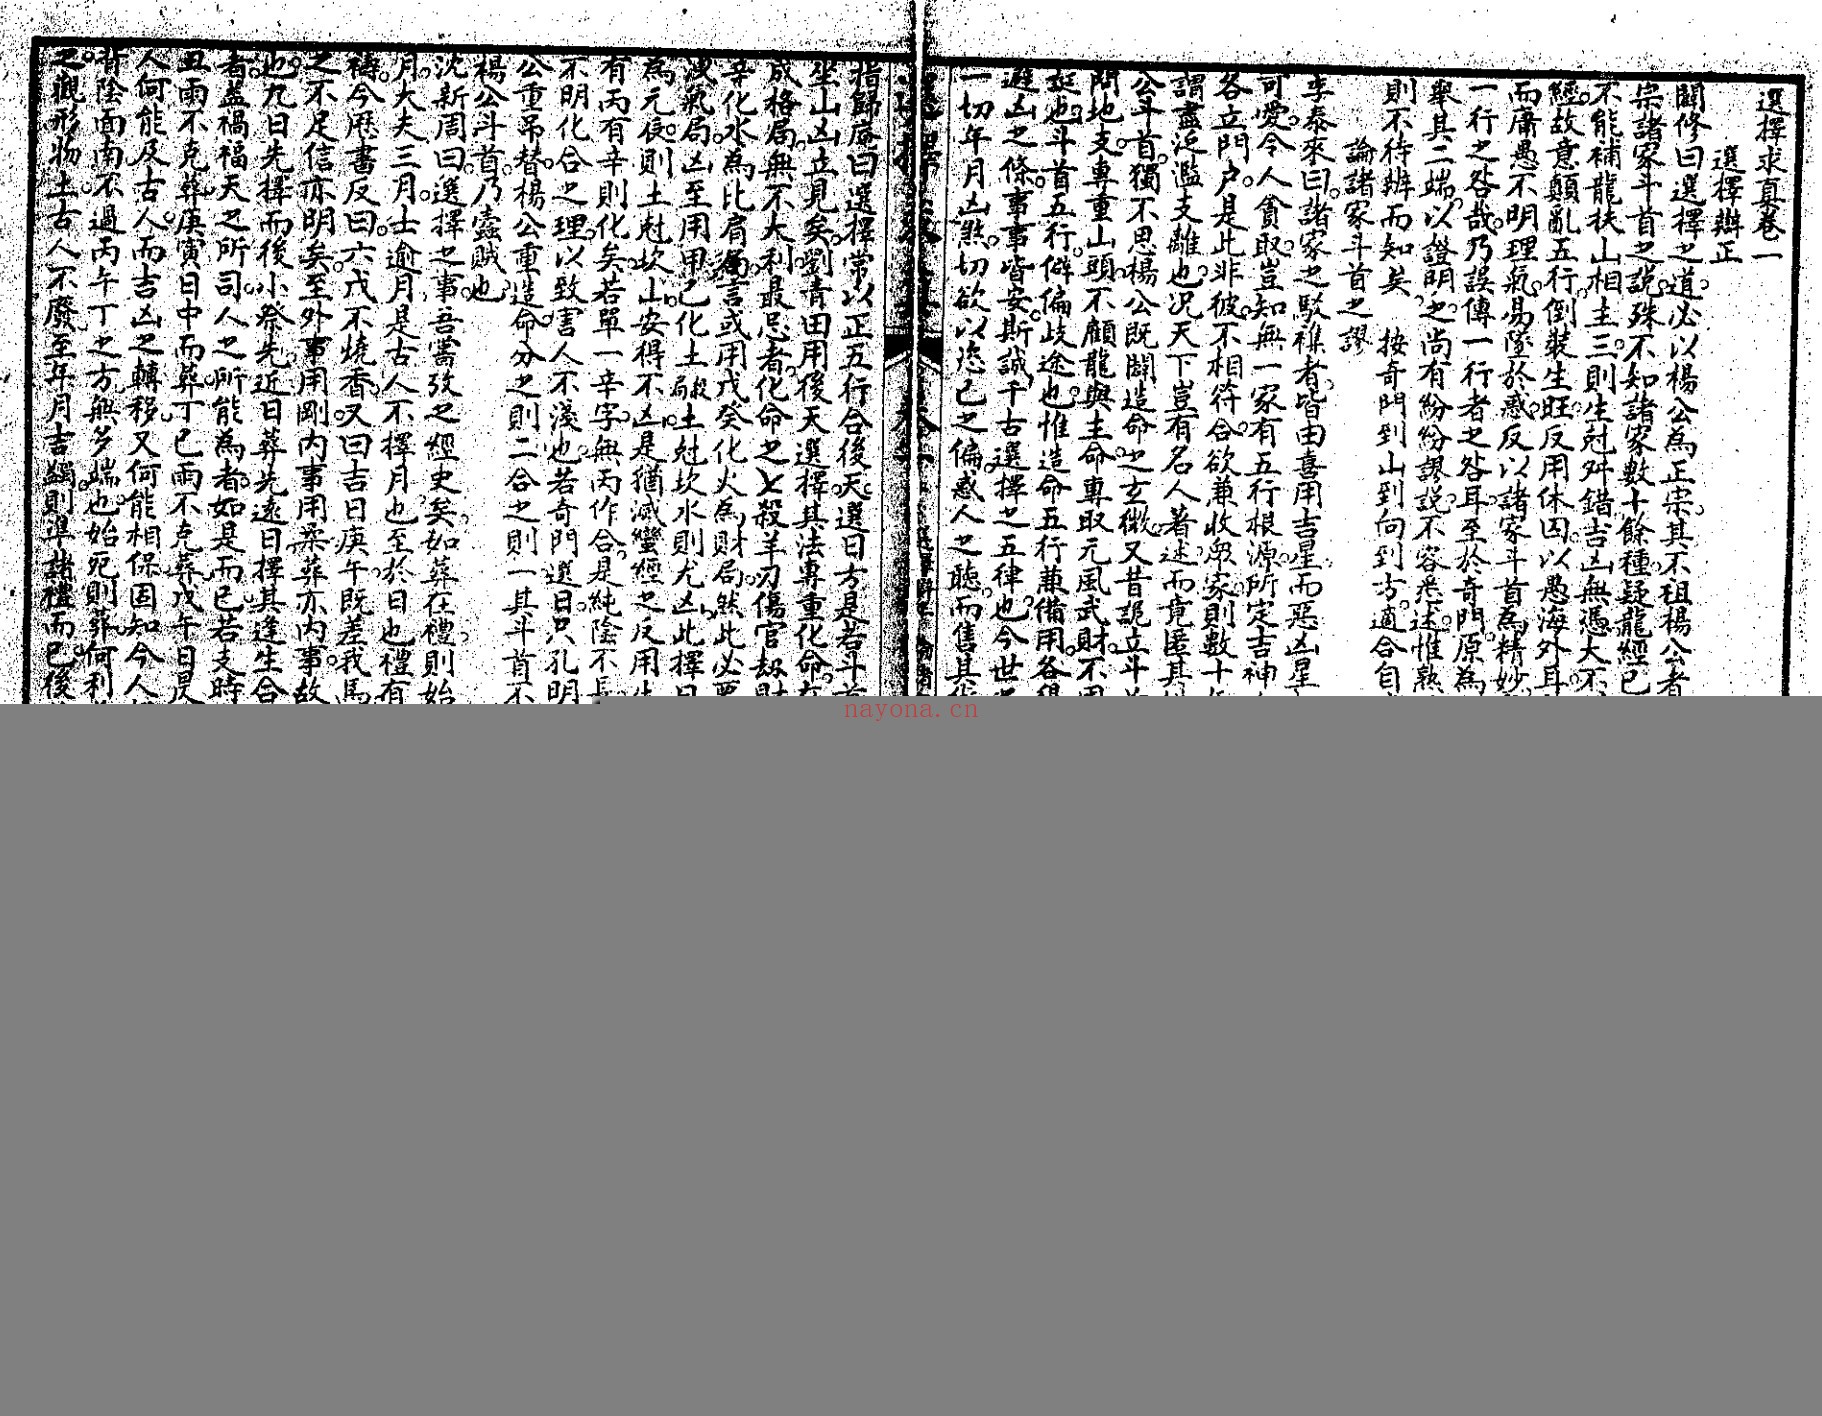 選擇求真卷一
選擇辨正
闢修曰選擇之道必以楊公為正宗其不祖楊公者
宗諸家斗首之說殊不知諸家數十餘種疑龍經已
不能補龍扶山相主三則生尅舛錯吉凶無憑大不
經故意顛亂五行倒裝生旺反用休囚以愚海外耳
而庸愚不明理氣易墜於惑反以諸家斗首為精妙
一行之咎哉乃誤傳一行者之咎耳至於奇門原為
舉其二端以證明之尚有紛紛謬說不容悉述惟熟
則不待辨而知矣 按奇門到山到向到方適合自
論諸家斗首之謬
李泰來曰諸家之駁雜者皆由喜用吉星而惡凶星
可愛令人貪取豈知無一家有五行根源所定吉神
各立門户是此非彼不相符合欲兼收眾家則數十
謂盡泛濫支離也况天下豈有名人著述而竟匿其
公斗首獨不思楊公既闢造命之玄微又昔詭立斗
問地支專重山頭不顧龍與主命專取元風武財不
莛也斗首五行僻偏歧途也惟造命五行兼備用各
避凶之條事事皆安斯誠千古選擇之五律也今世
一切年月凶煞切欲以恣己之偏惑人之聽而售其
指歸庵曰選擇常以正五行合後天選日方是若斗
坐山凶立見矣劉青田用後天選擇其法專重化命
成格局無不大利最忌者化命之七殺羊刃傷官刼
辛化水為比肩局言或用戊癸化火為財局然此必要
洩氣局凶至用甲己化土殺局土尅坎水則尤凶此擇
為元辰則土尅坎山安得不凶是猶滅蠻經之反用
有丙有辛則化矣若單一辛字無丙作合是純陰不長
不明化合之理以致害人不淺也若奇門選日只孔明
公重吊替楊公重造命分之則二合之則一其斗首不
楊公斗首乃蠹賊也
沈新周曰選擇之事吾嘗攷之經史矣如葬在禮則始
月大夫三月士逾月是古人不擇月也至於日也禮有
禱今厯書反曰六戊不燒香又曰吉日庚午既差我馬
之不足信亦明矣至外事用剛内事用柔葬亦内事故
也凡日先擇而後小祭先近日葬先遠日擇其逢生合
者蓋禍福天之所司人之所能為者如是而已若支時
丑雨不克葬庚寅日中而葬丁巳雨不克葬戊午日昃
人何能及古人而吉凶之轉移又何能相保固知今人
背陰面南不過丙午丁之方無多端也始死則葬何利
之觀形物土古人不廢至年月吉蠲則準諸禮而已後
nayona.cn